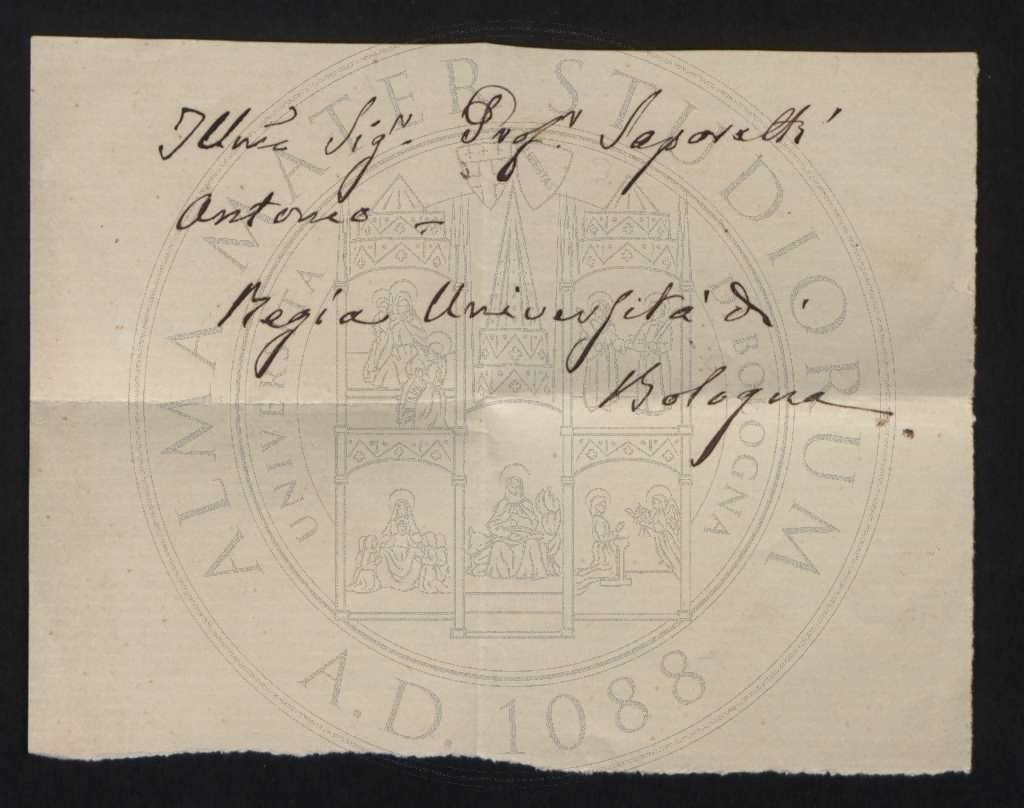 Illmo Sigr. Profr. Saporetti
Antonio =
Regia Università di
Bologna
ALMA MATER STUDIORUM
UNIVERSITÀ DI BOLOGNA
A.D. 1088